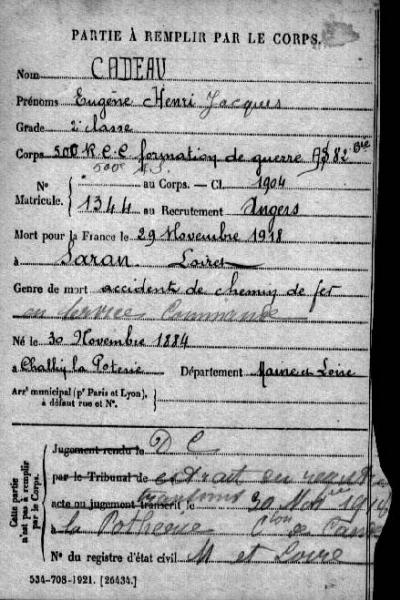 PARTIE À REMPLIR PAR LE CORPS.
Nom CADEAU
Prénoms Eugène Henri Jacques
Grade 2e classe
Corps 500 R.C.C. formation de guerre AS 82 bis
500e A.S.
N° au Corps. — Cl. 1904
Matricule. 1344 au Recrutement Angers
Mort pour la France le 29 Novembre 1918
à Saran Loiret
Genre de mort accident de chemin de fer
en service commandé
Né le 30 Novembre 1884
à Chally la Poterie Département Maine et Loire
Arrt municipal (pr Paris et Lyon),
à défaut rue et N°.
Cette partie
n'est pas à remplir
par le Corps.
Jugement rendu le D C
par le Tribunal de extrait du registre
acte ou jugement transcrit le 30 Nov 1919
à la Potherie Cton de Candé
N° du registre d'état civil M et Loire
534-708-1921. [26434.]